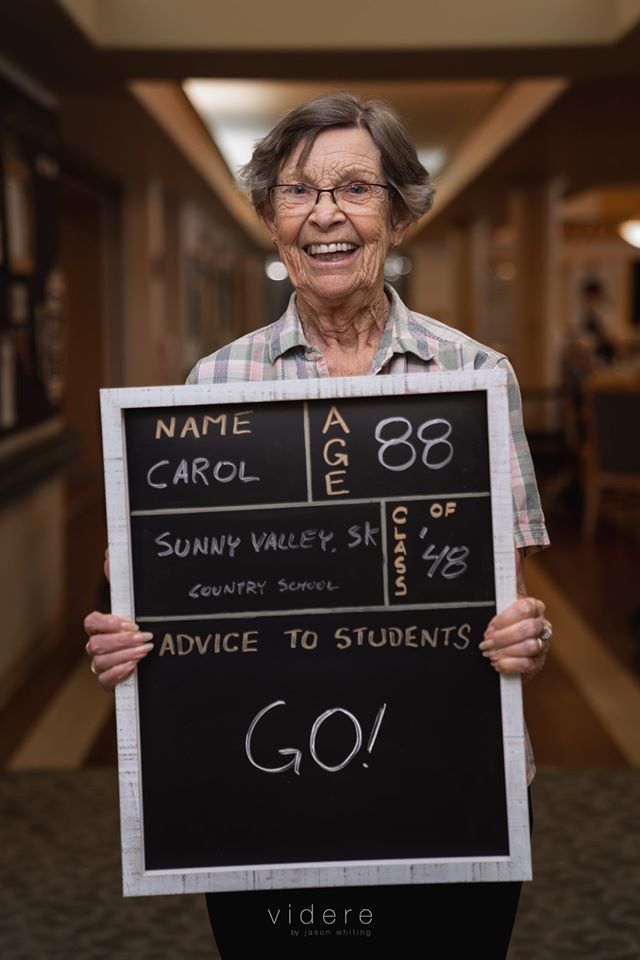 NAME
CAROL
AGE
88
SUNNY VALLEY, SK
COUNTRY SCHOOL
CLASS
OF
'48
ADVICE TO STUDENTS
GO!
videre
by jason whiting